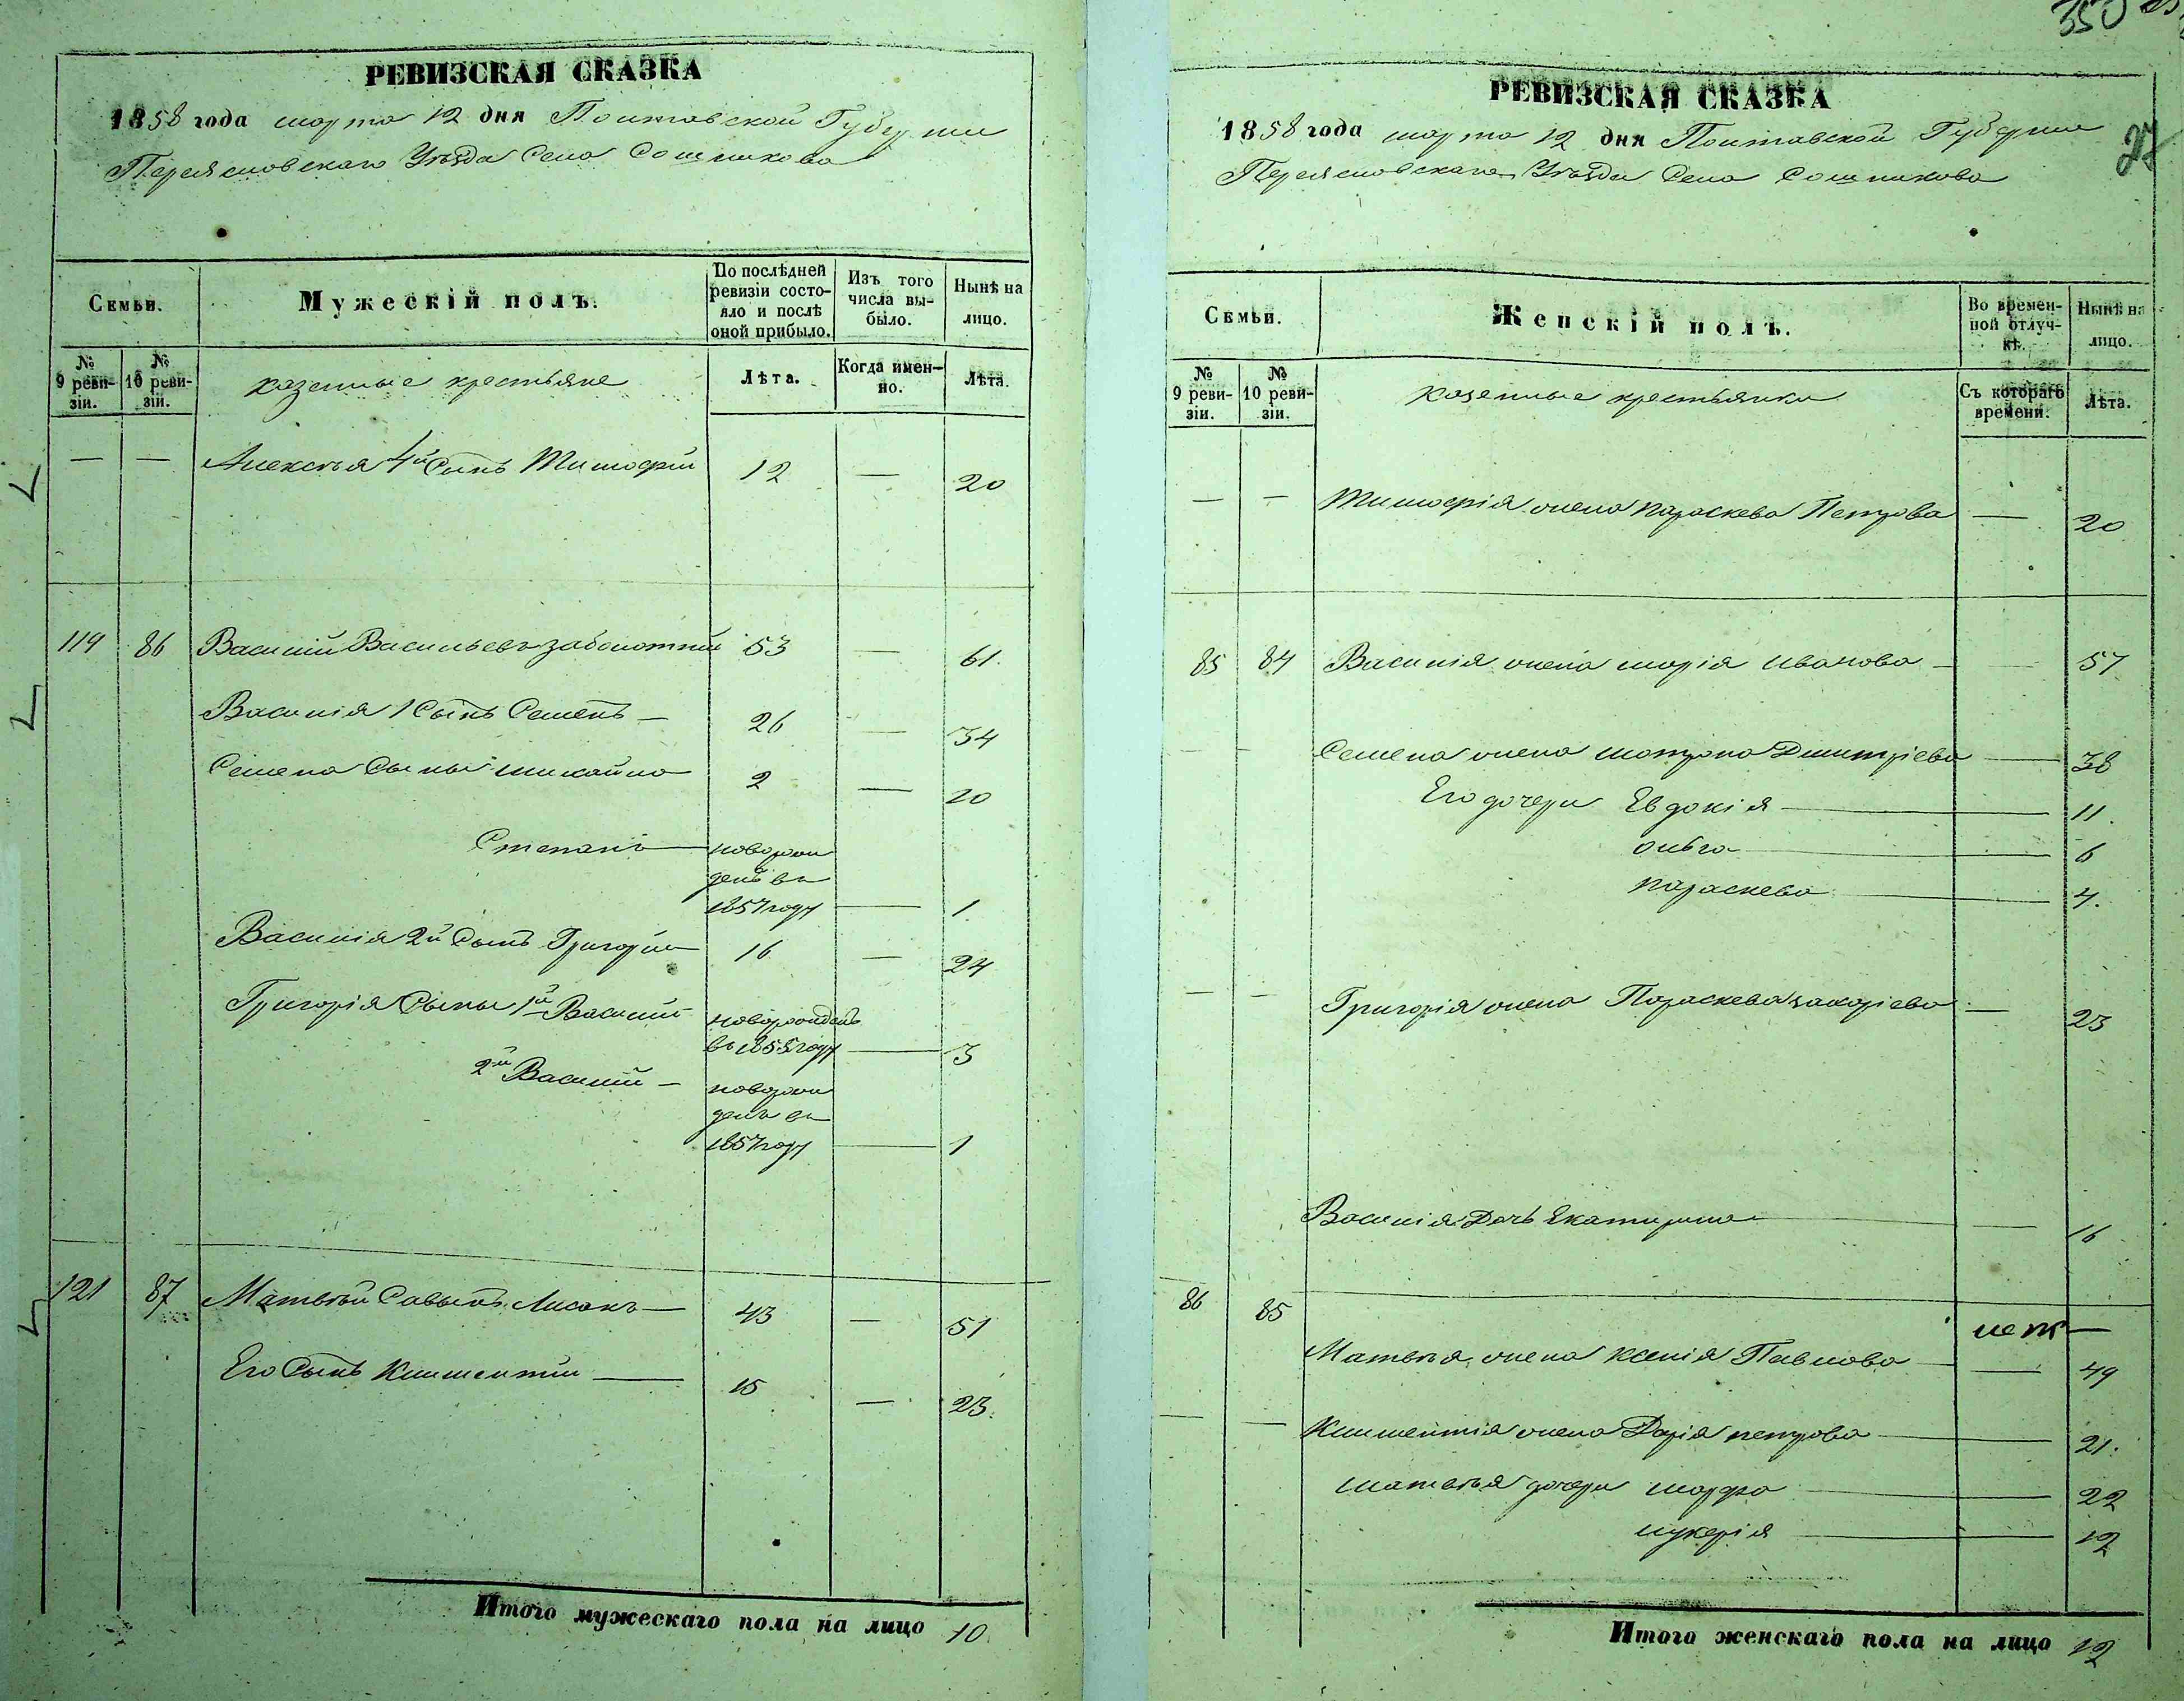 РЕВИЗСКАЯ СКАЗКА
1858 года марта 12 дня Полтавской Губернии
Переяславскаго Уѣзда Села Сошникова
Семьи.
Мужескій полъ.
По послѣдней ревизіи состояло и послѣ оной прибыло.
Изъ того числа выбыло.
Нынѣ на лицо.
№ 9 ревизіи.
№ 10 ревизіи.
казенные крестьяне
Лѣта.
Когда именно.
Лѣта.
— — Алексѣя 4й Сынъ Тимофѣй 12 — 20
119 86 Василій Васильевъ Заболотній 53 — 61.
Василія 1 Сынъ Семенъ — 26 — 34
Семена Сыны Михайло 2 — 10
Степанъ — новорож
денъ въ
1857 году — 1
Василія 2й Сынъ Григорій 16 — 24
Григорія Сыны 1й Василій новорожденъ
въ 1855 году — 3
2й Василій — новорож
денъ въ
1857 году — 1
121 87 Матвѣй Савинъ Лисакъ — 43 — 51
Его Сынъ Климентий — 15 — 23.
Итого мужескаго пола на лицо 10
350
27
РЕВИЗСКАЯ СКАЗКА
1858 года марта 12 дня Полтавской Губернии
Переяславскаго Уѣзда Села Сошникова
Семьи.
Женскій полъ.
Во временной отлучкѣ.
Нынѣ на лицо.
№ 9 ревизіи.
№ 10 ревизіи.
казенные крестьянки
Съ котораго времени.
Лѣта.
— — Тимофѣя жена Параскева Петрова — 20
85 84 Василія жена Марія Иванова — 57
— — Семена жена Матрона Дмитріева — 38
Его дочери Евдокія — 11.
Ольга — 6
Параскева — 4.
— — Григорія жена Параскева Захаріева — 23
Василія Дочь Екатерина — 16
86 85
Матвѣя жена Ксенія Павлова — 49
— — Климентія жена Дарія Петрова — 21.
Матвѣя дочери Марфа — 22
Лукерія — 12
Итого женскаго пола на лицо 12